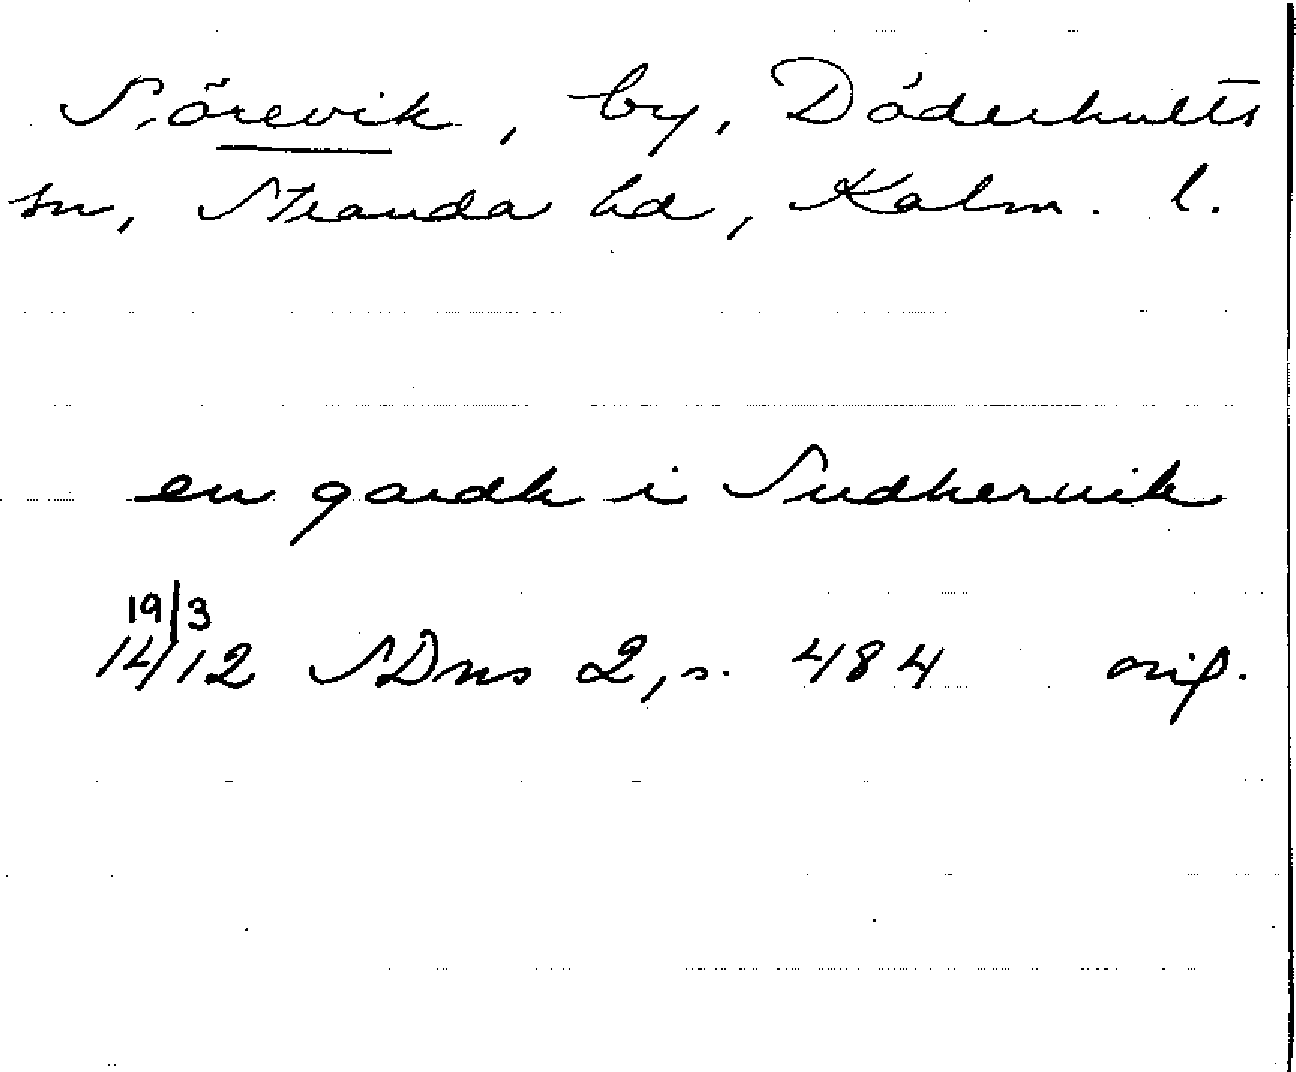 Sörevik, by, Döderhults
sn, Stranda hd, Kalm. l.
en gardh i Sudhervik
19/3
1412 SDns 2, s. 484 orig.